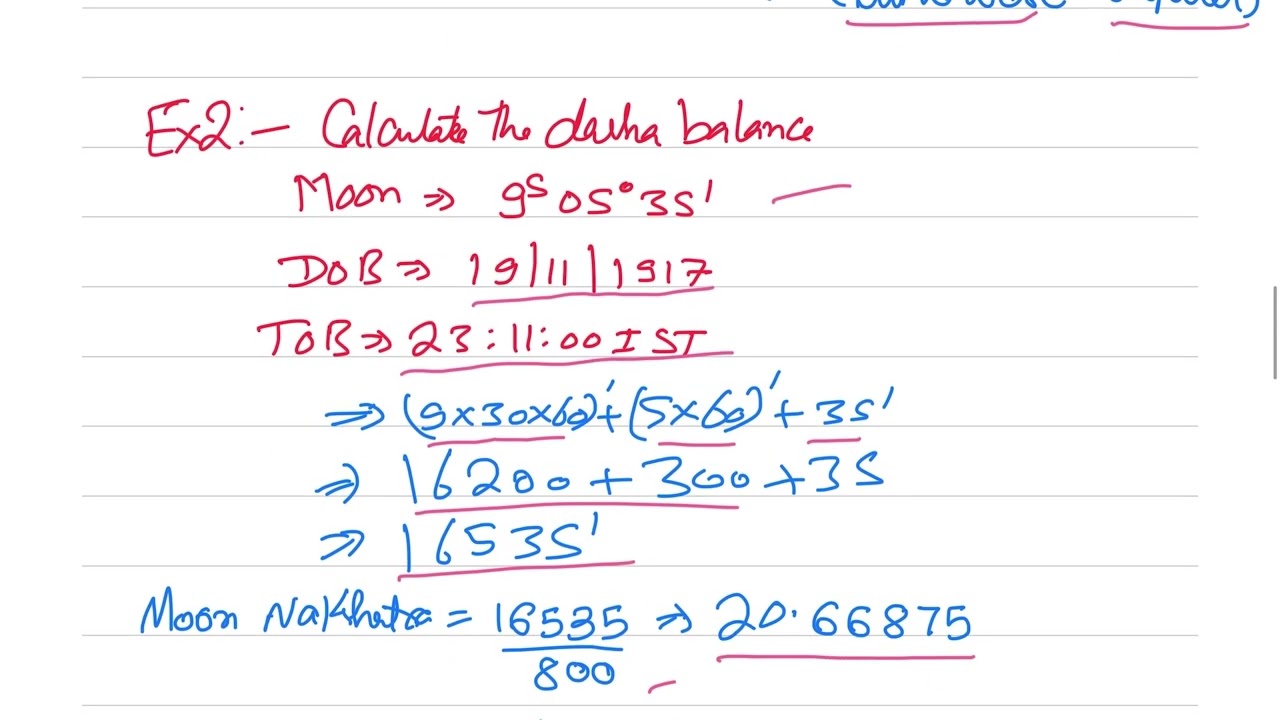 Ex2:- Calculate the dasha balance
Moon ⇒ 9ˢ 05° 35'
DOB ⇒ 19/11/1917
TOB ⇒ 23:11:00 IST
⇒ (9x30x60)' + (5x60)' + 35'
⇒ 16200 + 300 + 35
⇒ 16535'
Moon Nakshatra = 16535/800 ⇒ 20.66875